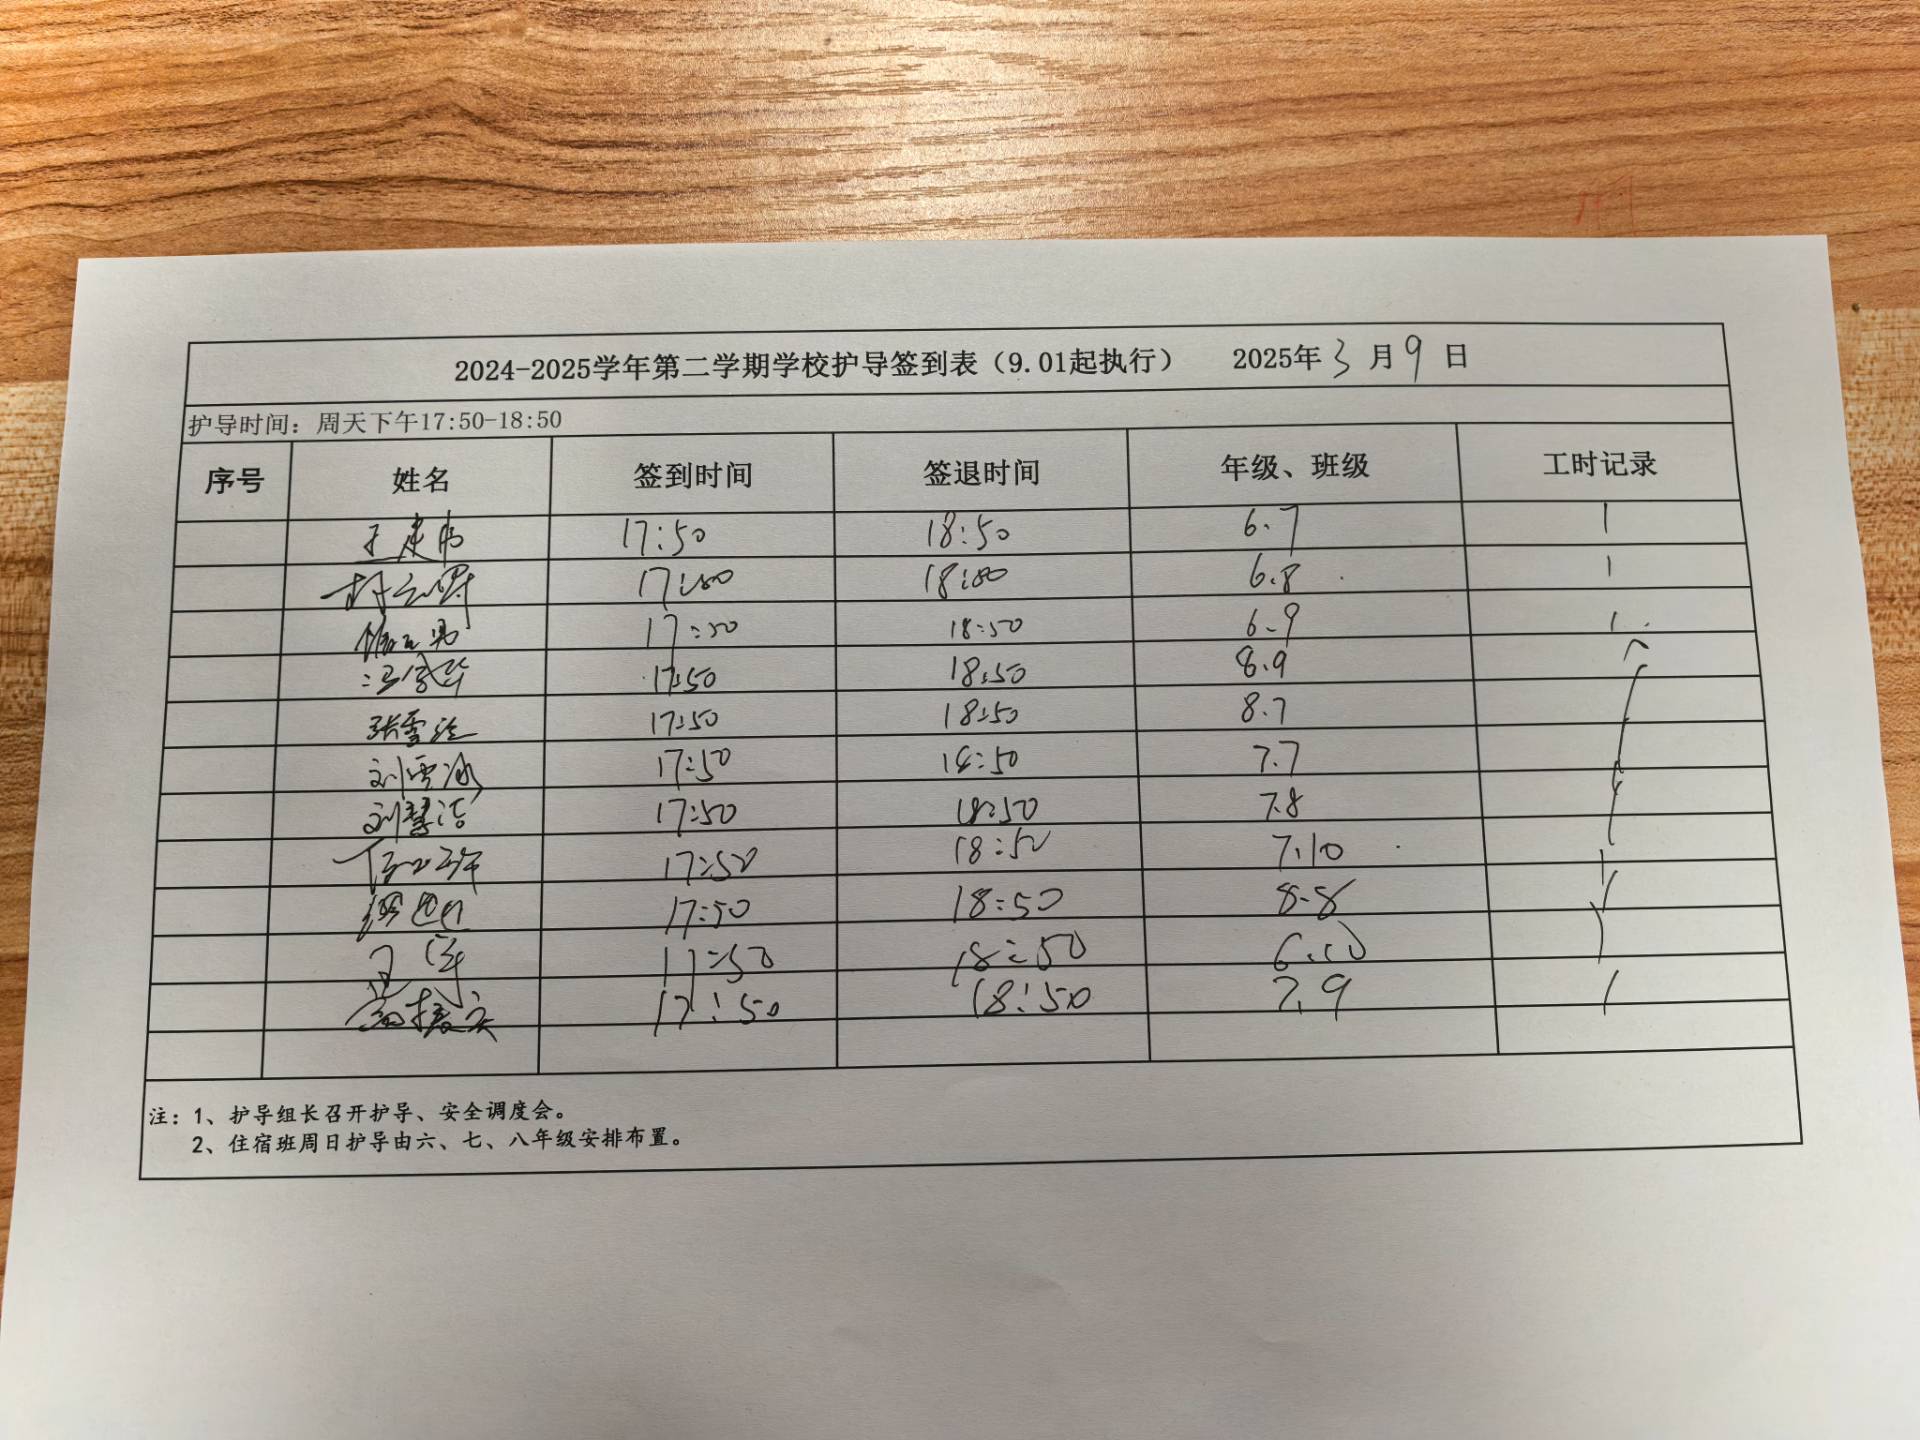 2024-2025学年第二学期学校护导签到表（9.01起执行） 2025年3月9日
护导时间：周天下午17:50-18:50
序号 姓名 签到时间 签退时间 年级、班级 工时记录
17:50 18:50 6.7 1
17:50 18:50 6.8 1
17:50 18:50 6.9 1
17:50 18:50 8.9
张雪 17:50 18:50 8.7
刘雪冰 17:50 18:50 7.7
刘慧洁 17:50 18:50 7.8
17:50 18:50 7.10 1
17:50 18:50 8.8 1
17:50 18:50 6.10 1
17:50 18:50 7.9 1
注：1、护导组长召开护导、安全调度会。
2、住宿班周日护导由六、七、八年级安排布置。